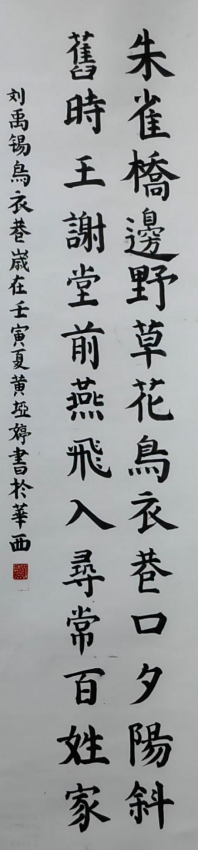 朱雀橋邊野草花鳥衣巷口夕陽斜
舊時王謝堂前燕飛入尋常百姓家
刘禹锡鳥衣巷歲在壬寅夏黄埡婷書於華西